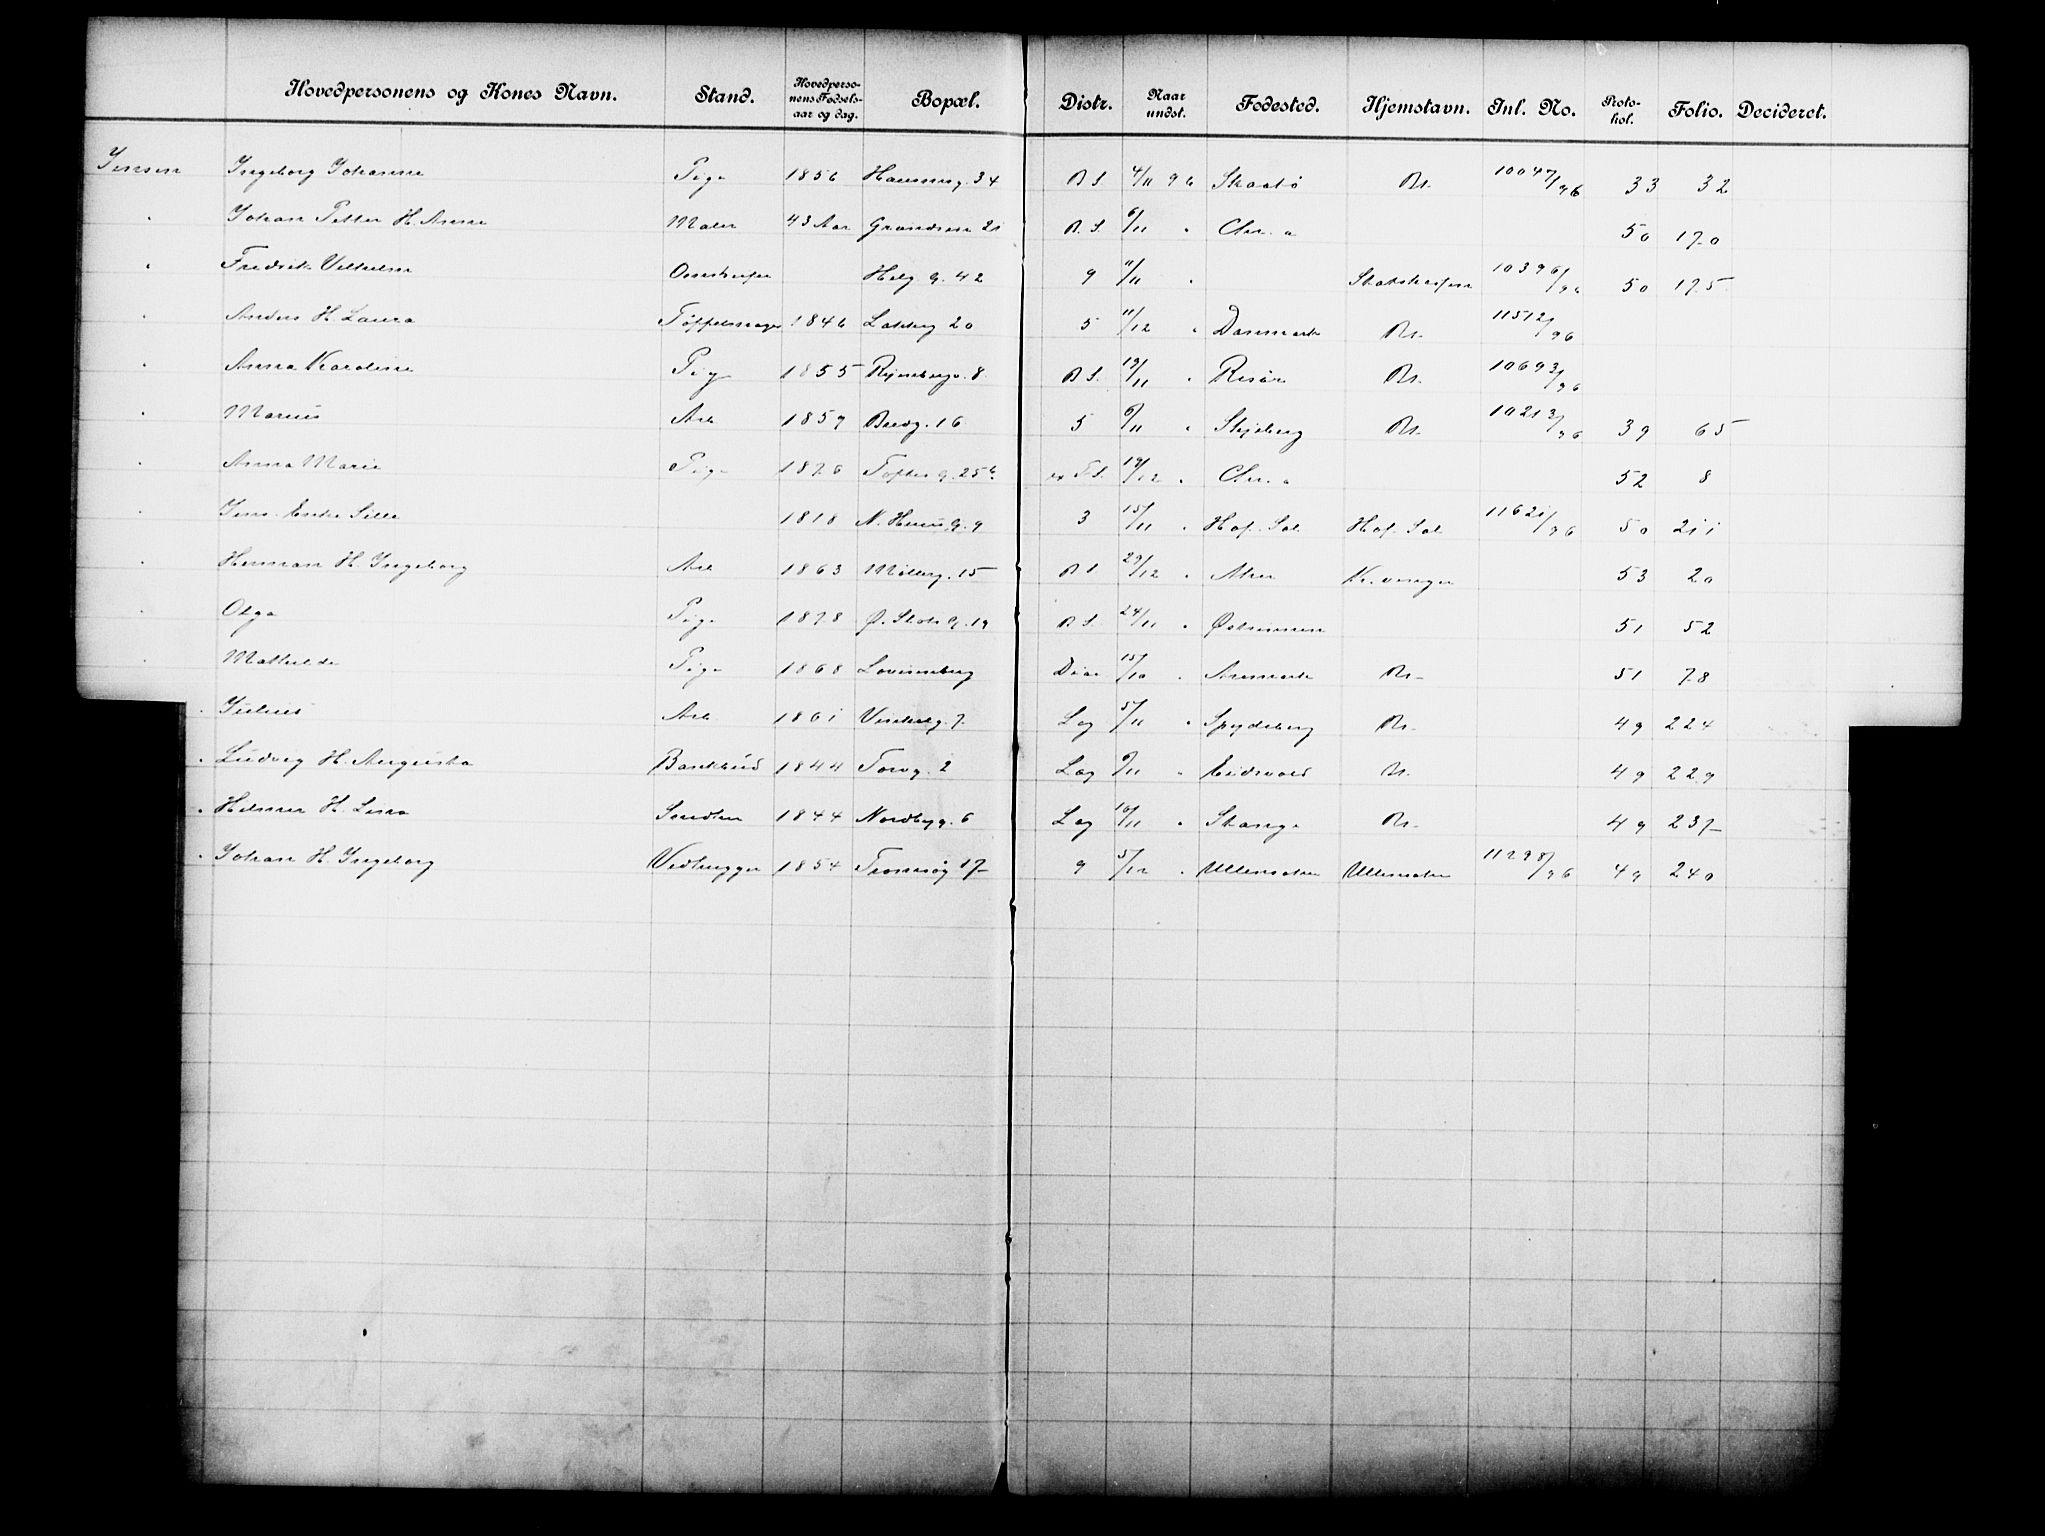 Hovedpersonens og Kones Navn. Stand. Hovedperso-nens Fødsels-aar og dag. Bopæl. Distr. Naar undst. Fødested. Hjemstavn. Inl. No. Proto-kol. Folio. Decideret.
Jensen Ingeborg Johanne Pige 1856 Hausmsg. 34 B S. 4/11 96 Skaatø Bt. 10047/96 33 32
" Johan Petter H. Anna Maler 43 Aar Grændsen 21 B. S. 6/11 " Chr. a 50 170
" Fredrik Vilhelm Helg. g. 42 9 11/11 " 10396/96 50 175
" Anders H. Laura Tøffelmager 1846 Lakkeg 20 5 11/12 " Danmark Bt. 11512/96
" Anna Karoline Pige 1855 8. B S. 19/11 " Risør Bt. 10693/96
" Marius Arb 1859 Bredg. 16 5 6/11 " Skjeberg Bt. 10213/96 39 65
" Anna Marie Pige 1876 Toftes g. 25 b 19/12 " Chr. a 52 8
" 1818 9 3 15/11 " Hof. Sol. Hof. Sol 11621/96 50 211
" Herman H. Ingeborg Arb 1863 Møllerg. 15 B S 29/12 " Kr. vinger 53 20
" Olga Pige 1878 Ø. Slots g. 19 B S. 24/11 " 51 52
" Mathilde Pige 1868 Lovisenberg Dia 15/10 " Aremark Bt. 51 78
" Julius Arb 1861 7. Lag 5/11 " Spydeberg Bt. 49 224
" Ludvig H. Augusta Bankbud 1844 Torvg. 2 Lag 9/11 " Eidsvold Bt. 49 229
" Helmer H. Lina 1844 Nordbyg. 6 Lag 10/11 " Stange Bt. 49 237
" Johan H. Ingeborg Vedhugger 1854 Tromsøg 17 9 5/12 " Ullensaker Ullensaker 11298/96 49 240